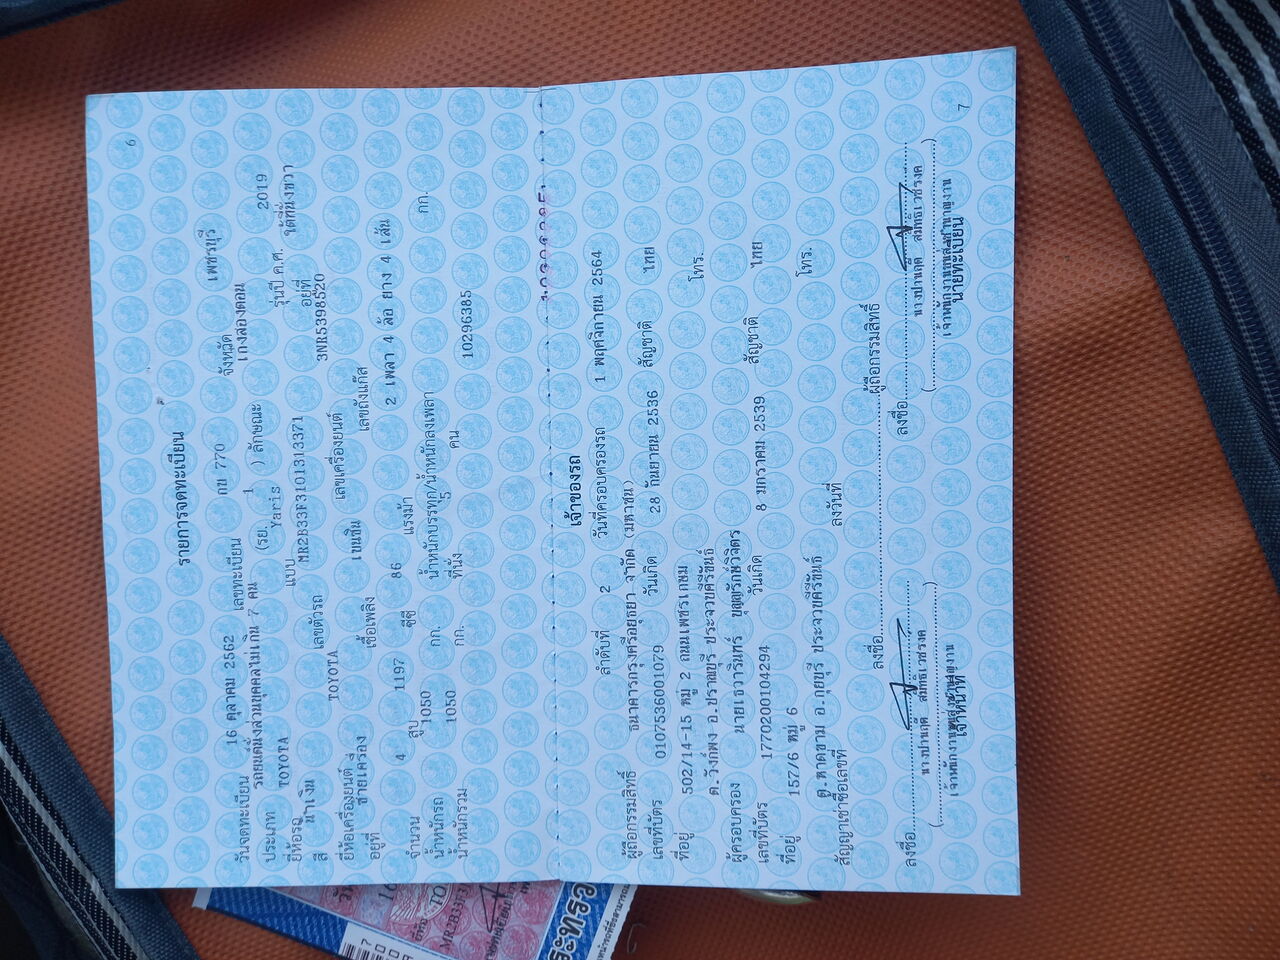 6
รายการจดทะเบียน
วันจดทะเบียน 16 ตุลาคม 2562 เลขทะเบียน กข 770 จังหวัด เพชรบุรี
ประเภท รถยนต์นั่งส่วนบุคคลไม่เกิน 7 คน (รย. 1 ) ลักษณะ เก๋งสองตอน
ยี่ห้อรถ TOYOTA แบบ Yaris รุ่นปี ค.ศ. 2019
สี น้ำเงิน เลขตัวรถ MR2B33F3101313371 อยู่ที่ ใต้ที่นั่งขวา
ยี่ห้อเครื่องยนต์ TOYOTA เลขเครื่องยนต์ 3NR5398520
อยู่ที่ ซ้ายเครื่อง เชื้อเพลิง เบนซิน เลขถังแก๊ส
จำนวน 4 สูบ 1197 ซีซี 86 แรงม้า 2 เพลา 4 ล้อ ยาง 4 เส้น
น้ำหนักรถ 1050 กก. น้ำหนักบรรทุก/น้ำหนักลงเพลา กก.
น้ำหนักรวม 1050 กก. ที่นั่ง 5 คน 10296385
เจ้าของรถ
ลำดับที่ 2 วันที่ครอบครองรถ 1 พฤศจิกายน 2564
ผู้ถือกรรมสิทธิ์ ธนาคารกรุงศรีอยุธยา จำกัด (มหาชน)
เลขที่บัตร 0107536001079 วันเกิด 28 กันยายน 2536 สัญชาติ ไทย
ที่อยู่ 502/14-15 หมู่ 2 ถนนเพชรเกษม โทร.
ต.วังก์พง อ.ปราณบุรี ประจวบคีรีขันธ์
ผู้ครอบครอง บุญรักษ์วิจิตร
เลขที่บัตร 1770200104294 วันเกิด 8 มกราคม 2539 สัญชาติ ไทย
ที่อยู่ 157/6 หมู่ 6 โทร.
ต.หาดขาม อ.กุยบุรี ประจวบคีรีขันธ์
สัญญาเช่าซื้อเลขที่ ลงวันที่
ลงชื่อ ผู้ถือกรรมสิทธิ์
ลงชื่อ ลงชื่อ
เจ้าหน้าที่ นายทะเบียน
7